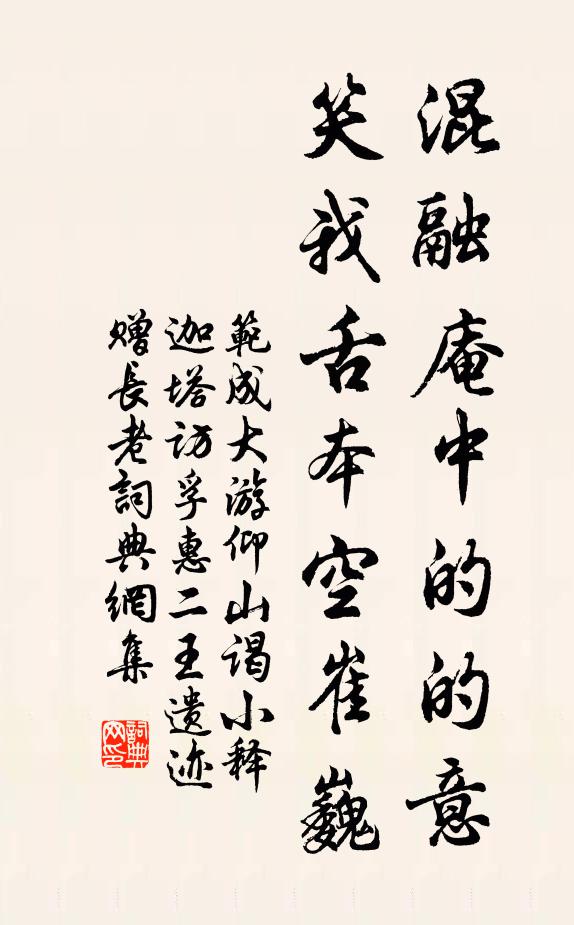 混融庵中的的意
笑我舌本空崔巍
範成大游仰山谒小释
迦塔访孚惠二王遗迹
赠長老詞典網集
詞典
网印